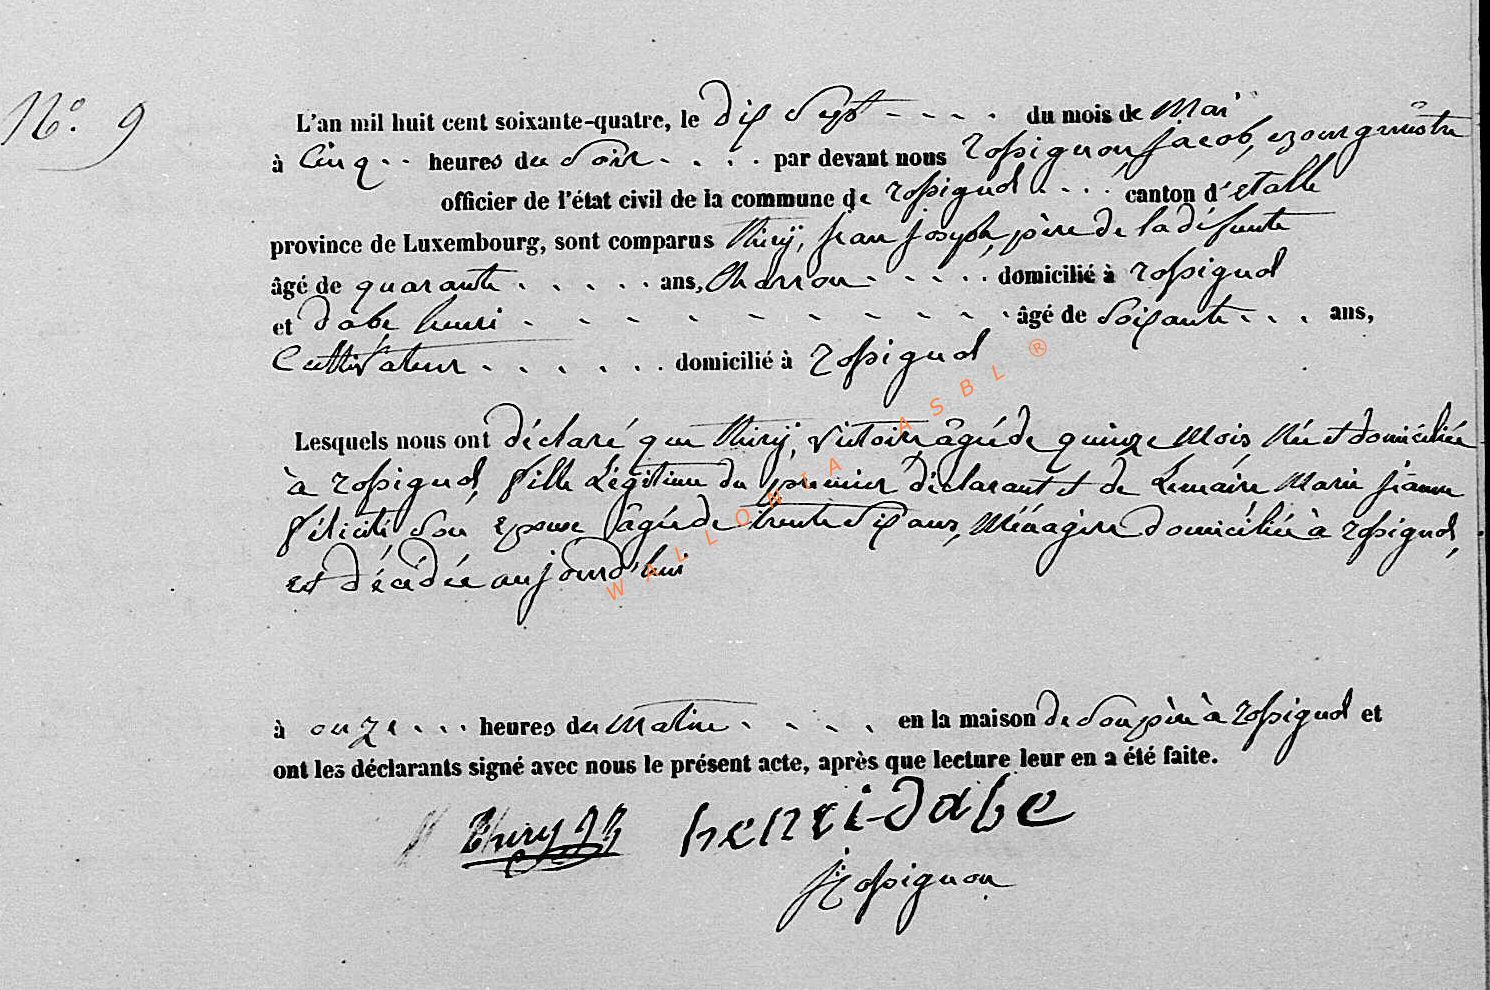 N° 9
L'an mil huit cent soixante-quatre, le dix Sept - - - . du mois de Mai
à Cinq . . heures du Soir . . . . par devant nous Rossignon Jacob, Bourgmestre
officier de l'état civil de la commune de Rossignol . . . canton d'Etalle
province de Luxembourg, sont comparus Thirÿ, Jean Joseph, père de la défunte
âgé de quarante . . . . . ans, Charron . . . . . domicilié à Rossignol
et Dabe henri . - - - - - - - - - . âgé de Soixante . . . ans,
Cultivateur . . . . . . . domicilié à Rossignol
Lesquels nous ont déclaré que Thirÿ, Victoire, âgée de quinze Mois, Née et domiciliée
à Rossignol, fille Légitime du premier déclarant et de Lemaire Marie Jeanne
Félicité Son Epouse âgée de trente Six ans, Ménagère domiciliée à Rossignol,
est décédée aujourd'hui
à onze . . . heures du Matin . . . . en la maison de Son père à Rossignol et
ont les déclarants signé avec nous le présent acte, après que lecture leur en a été faite.
Thiry JJ henri-dabe
J Rossignon
WALLONIA ASBL ®